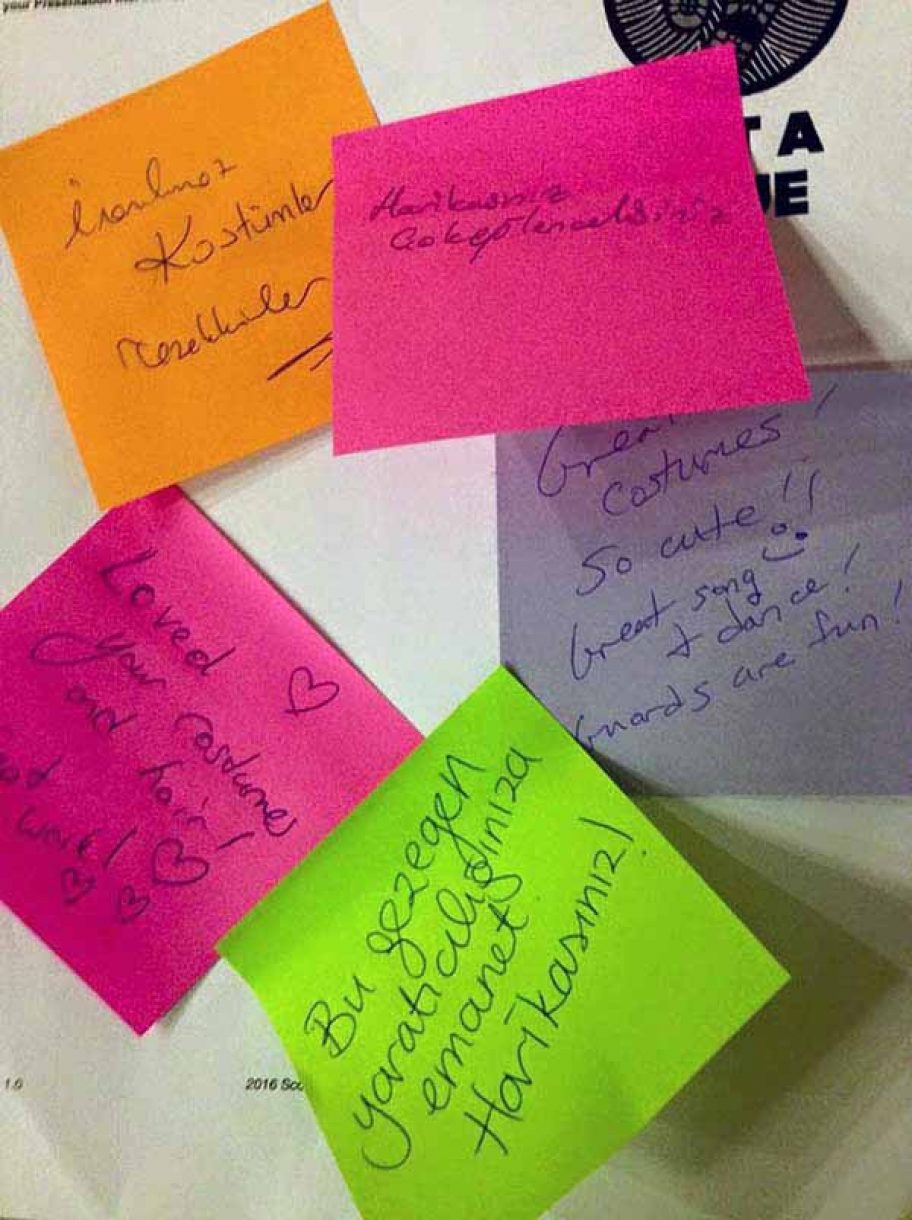 your Presentation
T A
UE
İnanılmaz
Kostümler
Teşekkürler
Harikasınız
Çok eğlencelisiniz
Great
costumes!
So cute!!
Great song
+ dance!
Guards are fun!
Loved
your costume
and hair!
work!
Bu gezegen
yaratıcılığınıza
emanet.
Harikasınız!
1.0
2016